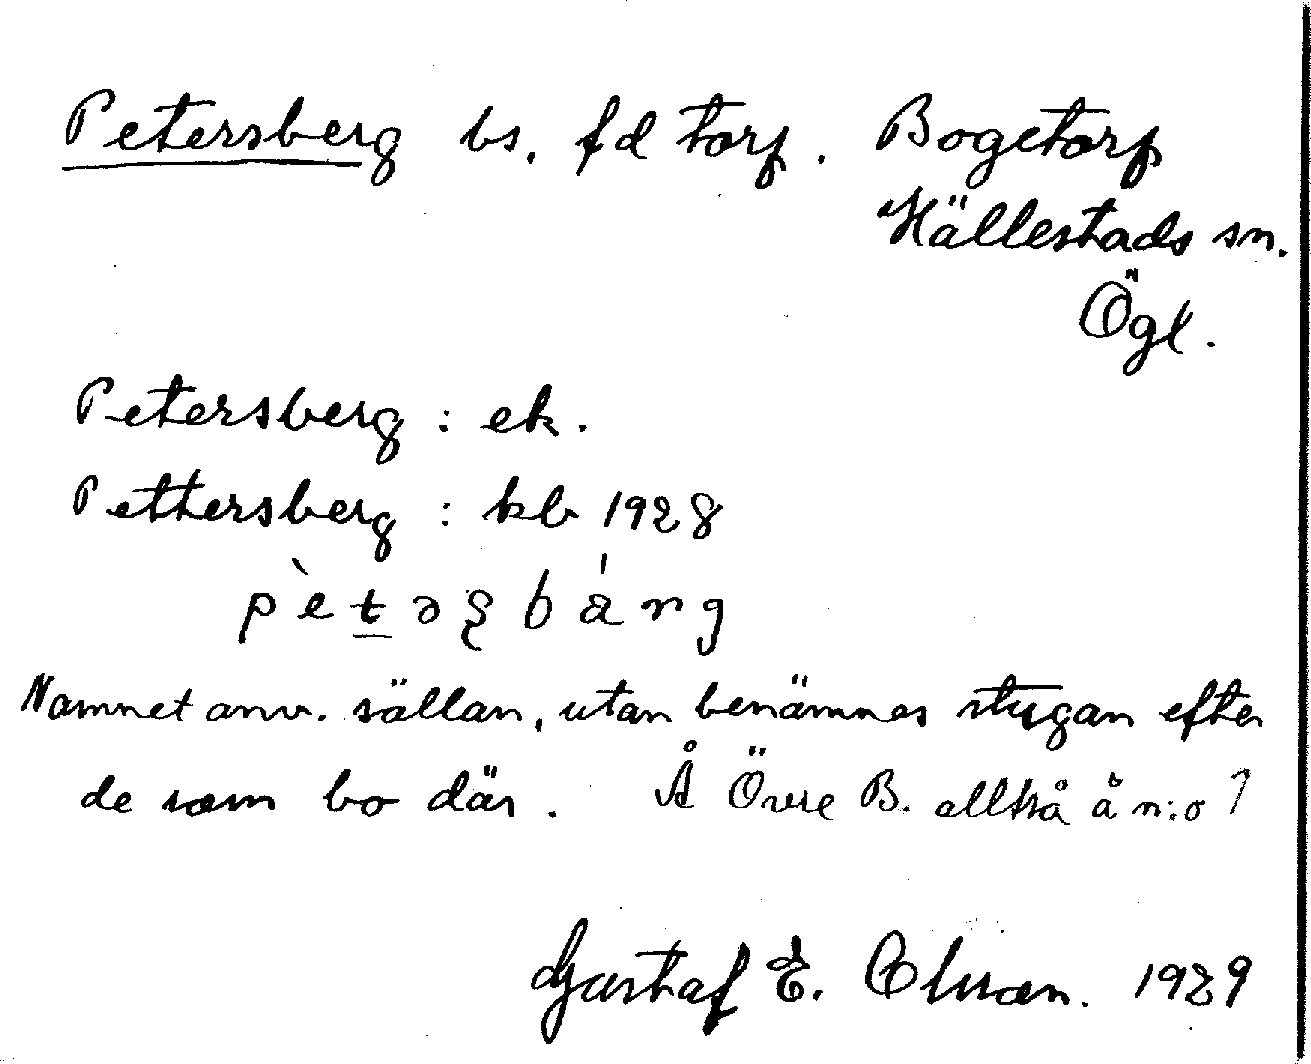 Petersberg bs. fd torp. Bogetorp
Hällestads sn.
Ögl.
Petersberg : ek.
Pettersberg : kb 1928
Namnet anv. sällan, utan benämnes stugan efter
de som bo där. Å Övre B. alltså å n:o 1
Gustaf E. Olsson. 1929